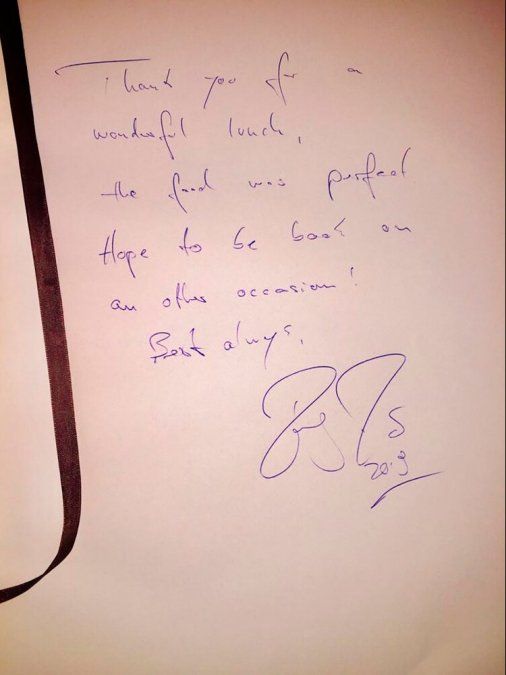 Thank you for a
wonderful lunch,
the food was perfect
Hope to be back on
an other occasion!
Best always,
2013